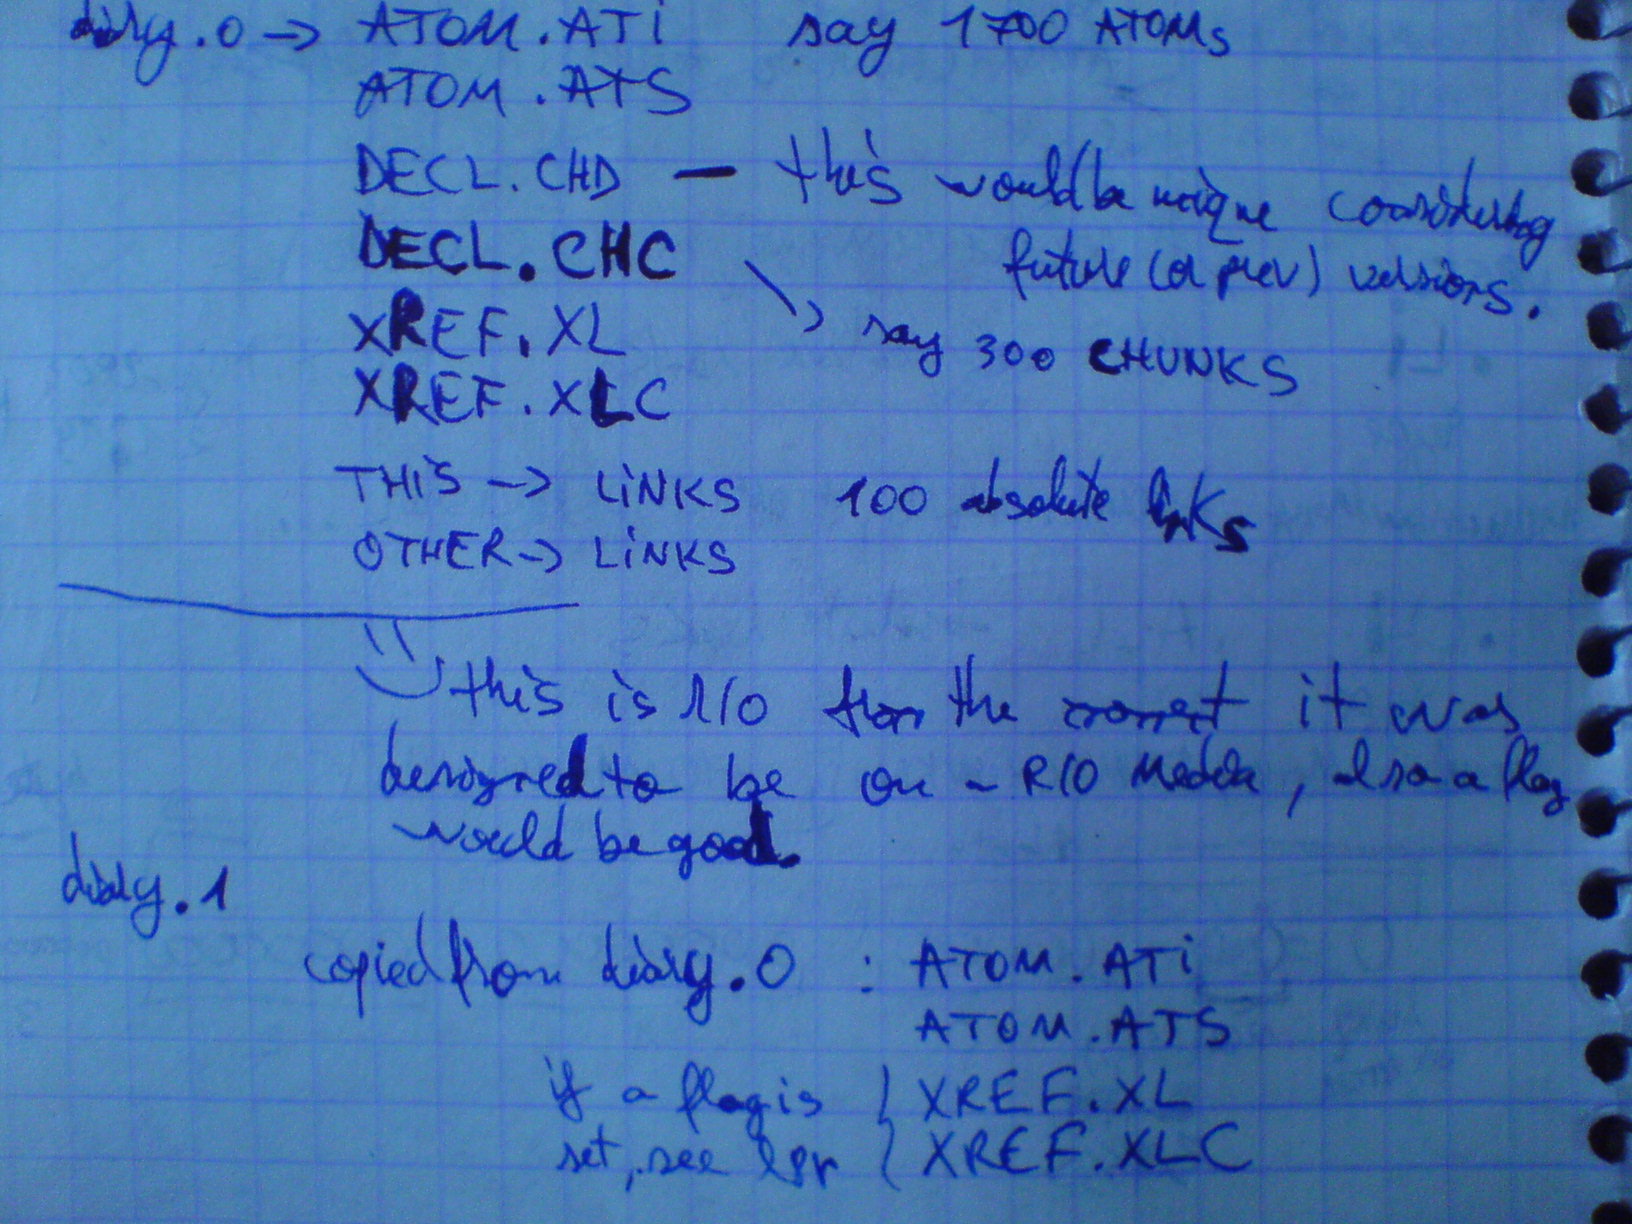 diary.0 → ATOM.ATi say 1700 ATOMs
ATOM.ATS
DECL.CHD — this would be unique considering
DECL.CHC future (or prev) versions.
XREF.XL say 300 CHUNKS
XREF.XLC
THiS → LiNKS 100 absolute links
OTHER → LiNKS
this is R/O from the moment it was
designed to be on a R/O Media, also a flag
would be good.
diary.1
copied from diary.0 : ATOM.ATi
ATOM.ATS
if a flag is { XREF.XL
set, see { XREF.XLC